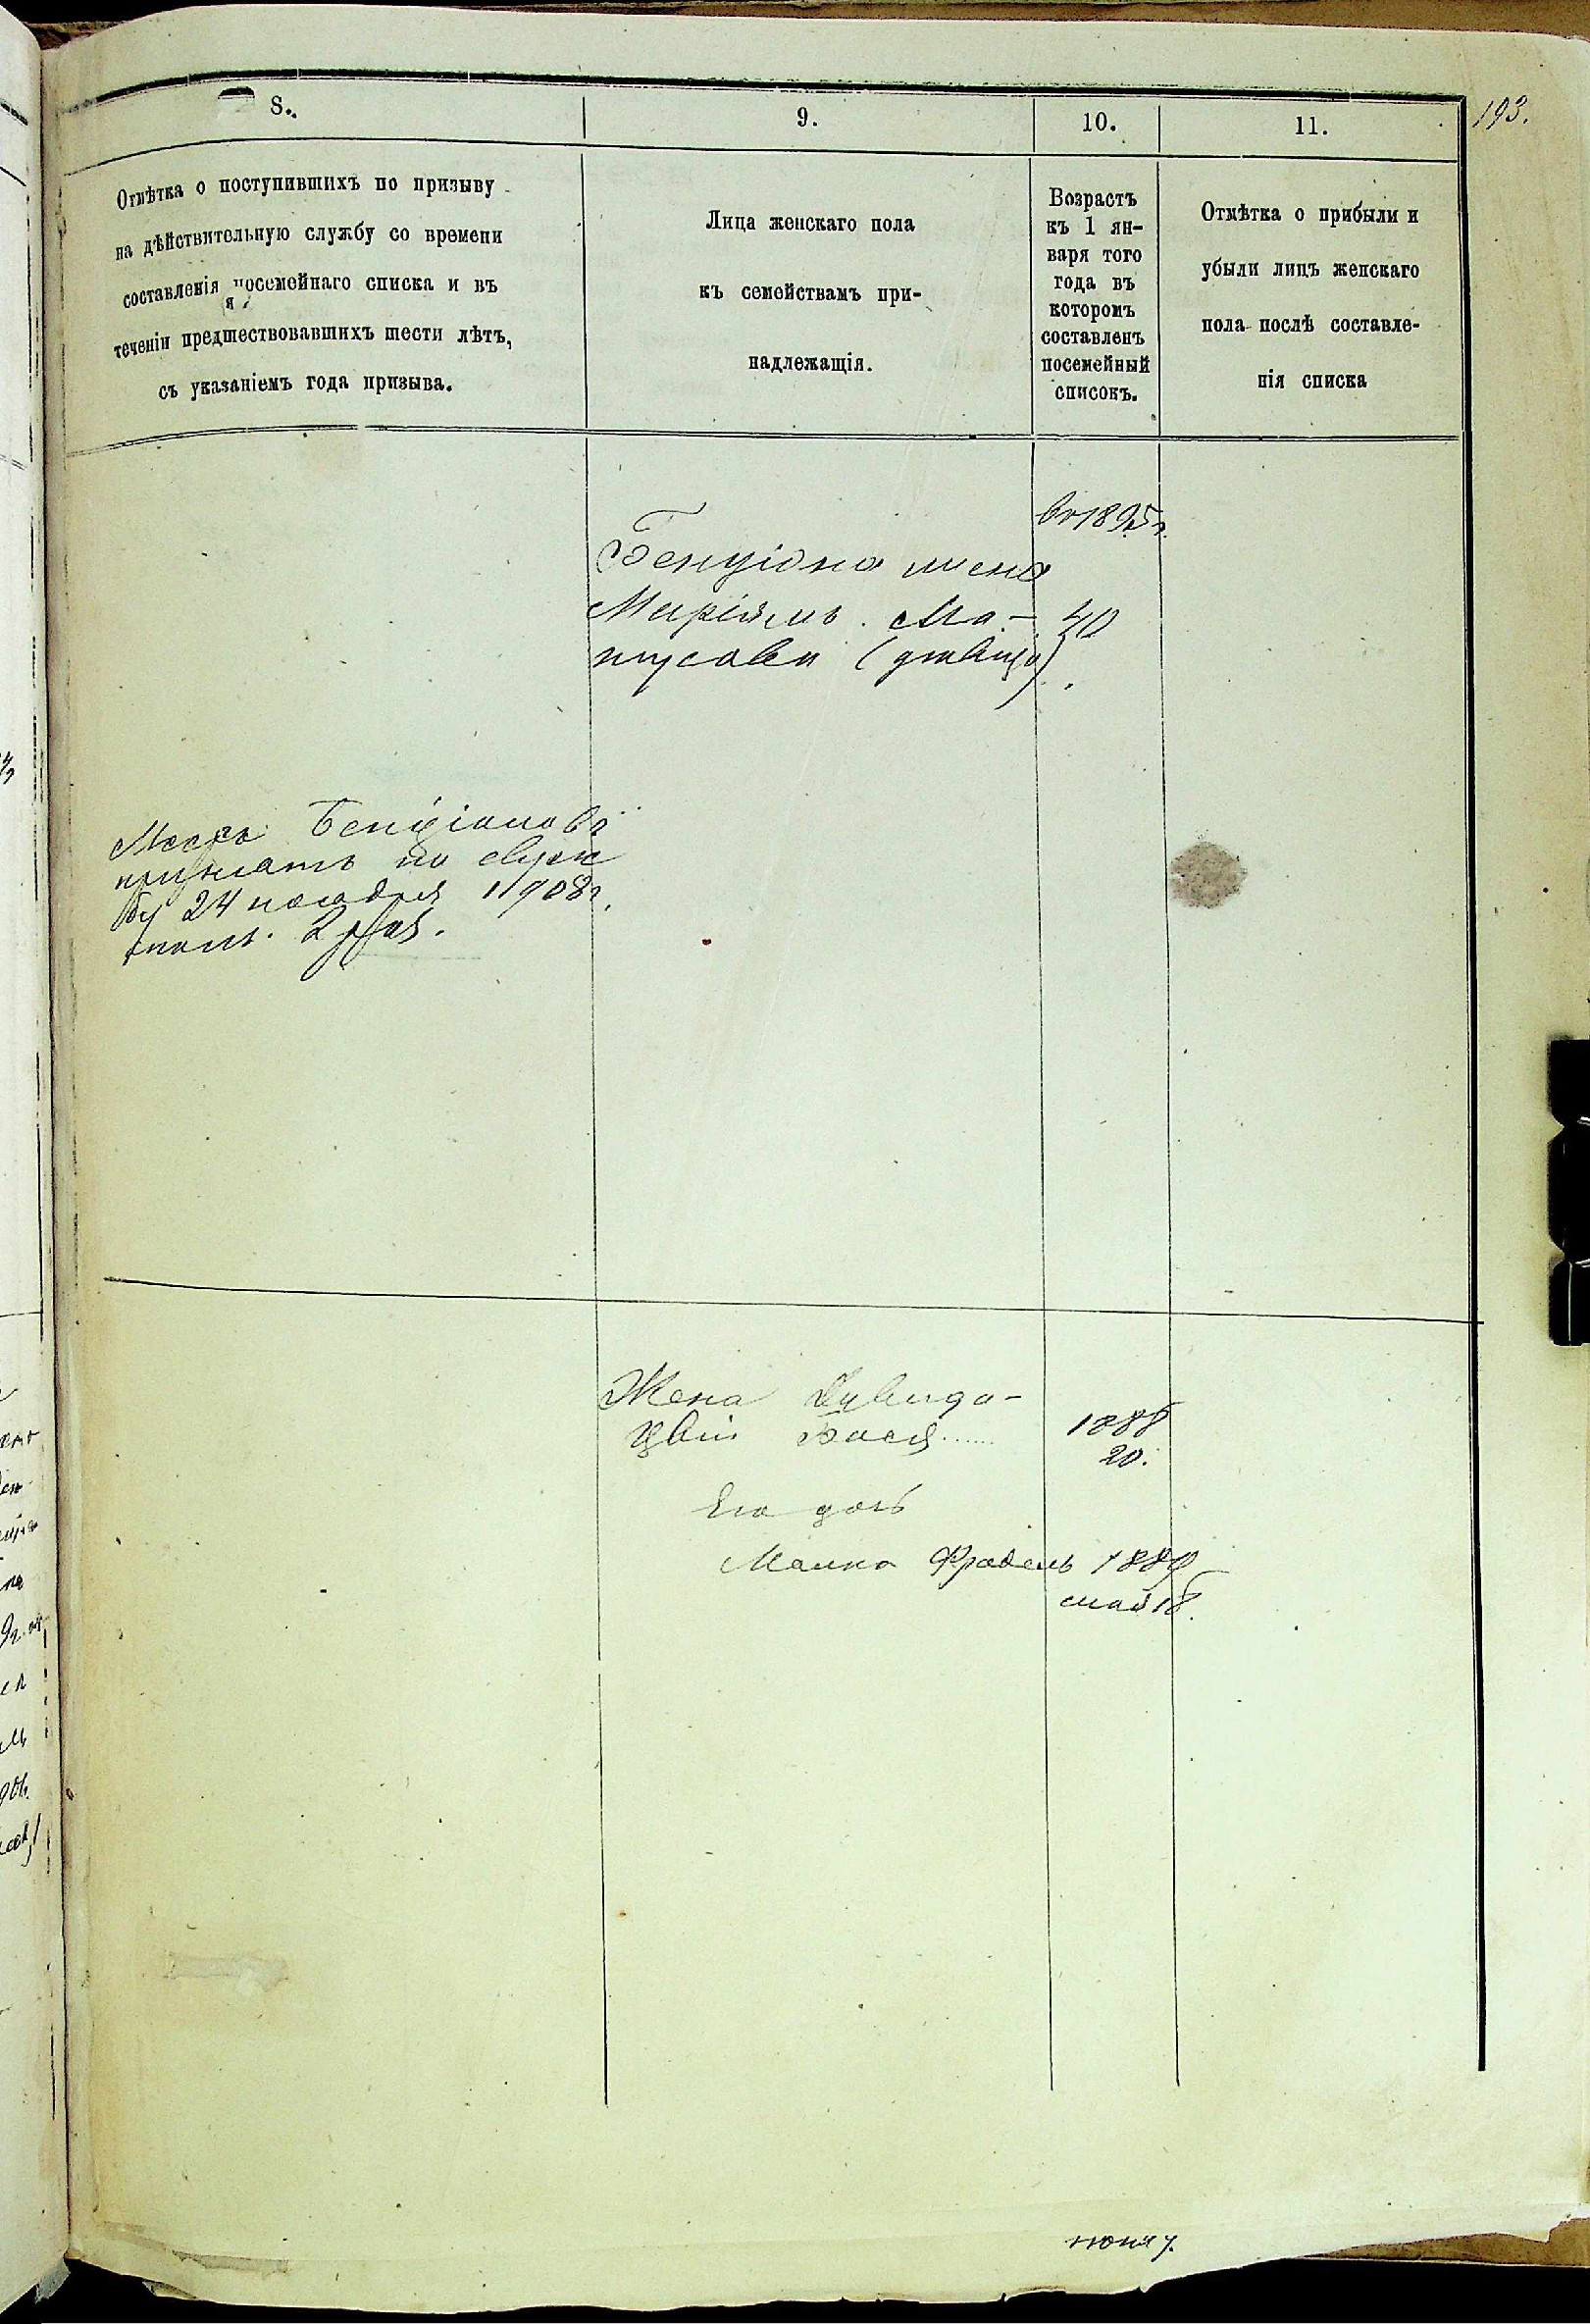 193.
8.
9.
10.
11.
Отмѣтка о поступившихъ по призыву
на дѣйствительную службу со времени
составленія посемейнаго списка и въ
теченіи предшествовавшихъ шести лѣтъ,
съ указаніемъ года призыва.
Лица женскаго пола
къ семействамъ при-
надлежащія.
Возрастъ
къ 1 ян-
варя того
года въ
которомъ
составленъ
посемейный
списокъ.
Отмѣтка о прибыли и
убыли лицъ женскаго
пола послѣ составле-
нія списка
въ 1895 г.
Бенціона жена
Маріямъ Ма- 40
тусовн (дѣвица)
Бенціоновъ
принятъ на служ
бу 24 ноября 1908 г.
Жена Давида-
Цви Бася 1888
20.
Его дочь
Малка Фрадель 1889
май 18.